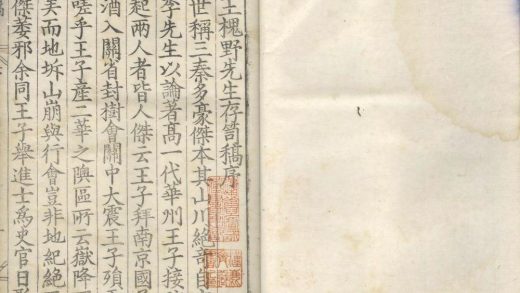 王槐野先生存笥稿序
世稱三秦多豪傑本其山川絶竒自
李先生以論著髙一代華州王子接
起兩人者皆人傑云王子拜南京國子
酒入關省封樹會關中大震王子殞
嗟乎王子産二華之隩區所云嶽降
矣而地坼山崩與行會豈非地紀絶
傑萎邪余同王子舉進士爲史官日